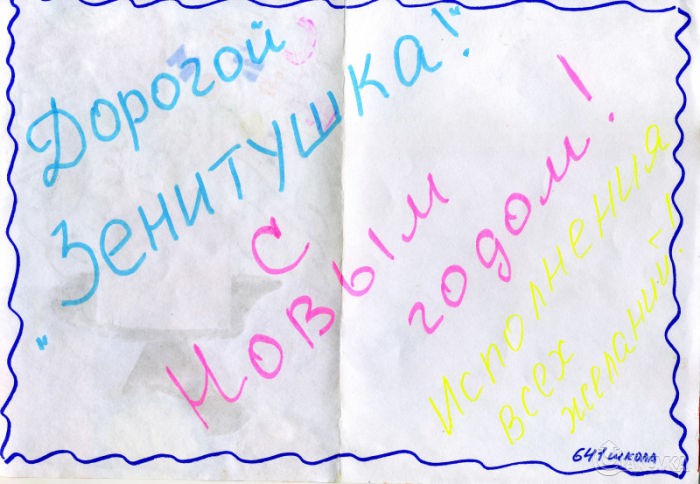 Дорогой
"Зенитушка!"
С
Новым
годом!
Исполнения
всех
желаний!
641 школа